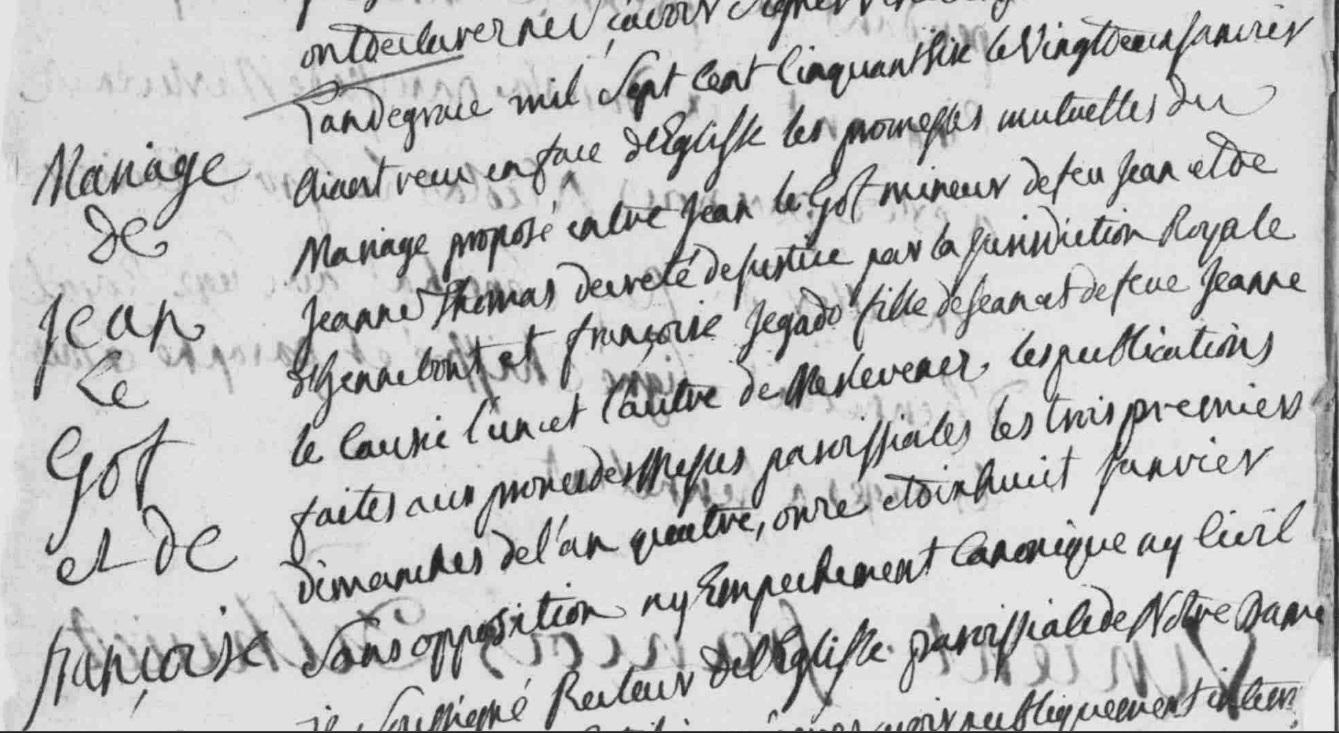 ont declaré ne sçavoir signer
L'an de grace mil Sept cent cinquant six le Vingt deux Janvier
Mariage
de
Jean
Le
Gof
et de
françoise
aiant veu en face de l'Eglisse les promesses mutuelles du
Mariage proposé entre Jean le Gof mineur de feu Jean et de
Jeanne Thomas decreté de justice par la Jurisdiction Royale
d'hennebont et françoise Jegado fille de Jean et de feue Jeanne
le l'un et l'autre de Merlevener, les publications
faites aux prones des Messes paroissiales les trois premiers
dimanches de l'an quatre, onze et dixhuit Janvier
Sans opposition ny Empechement Canonique ny Civil
je Soussigné Recteur de l'Eglisse paroissiale de Notre Dame
publiquement